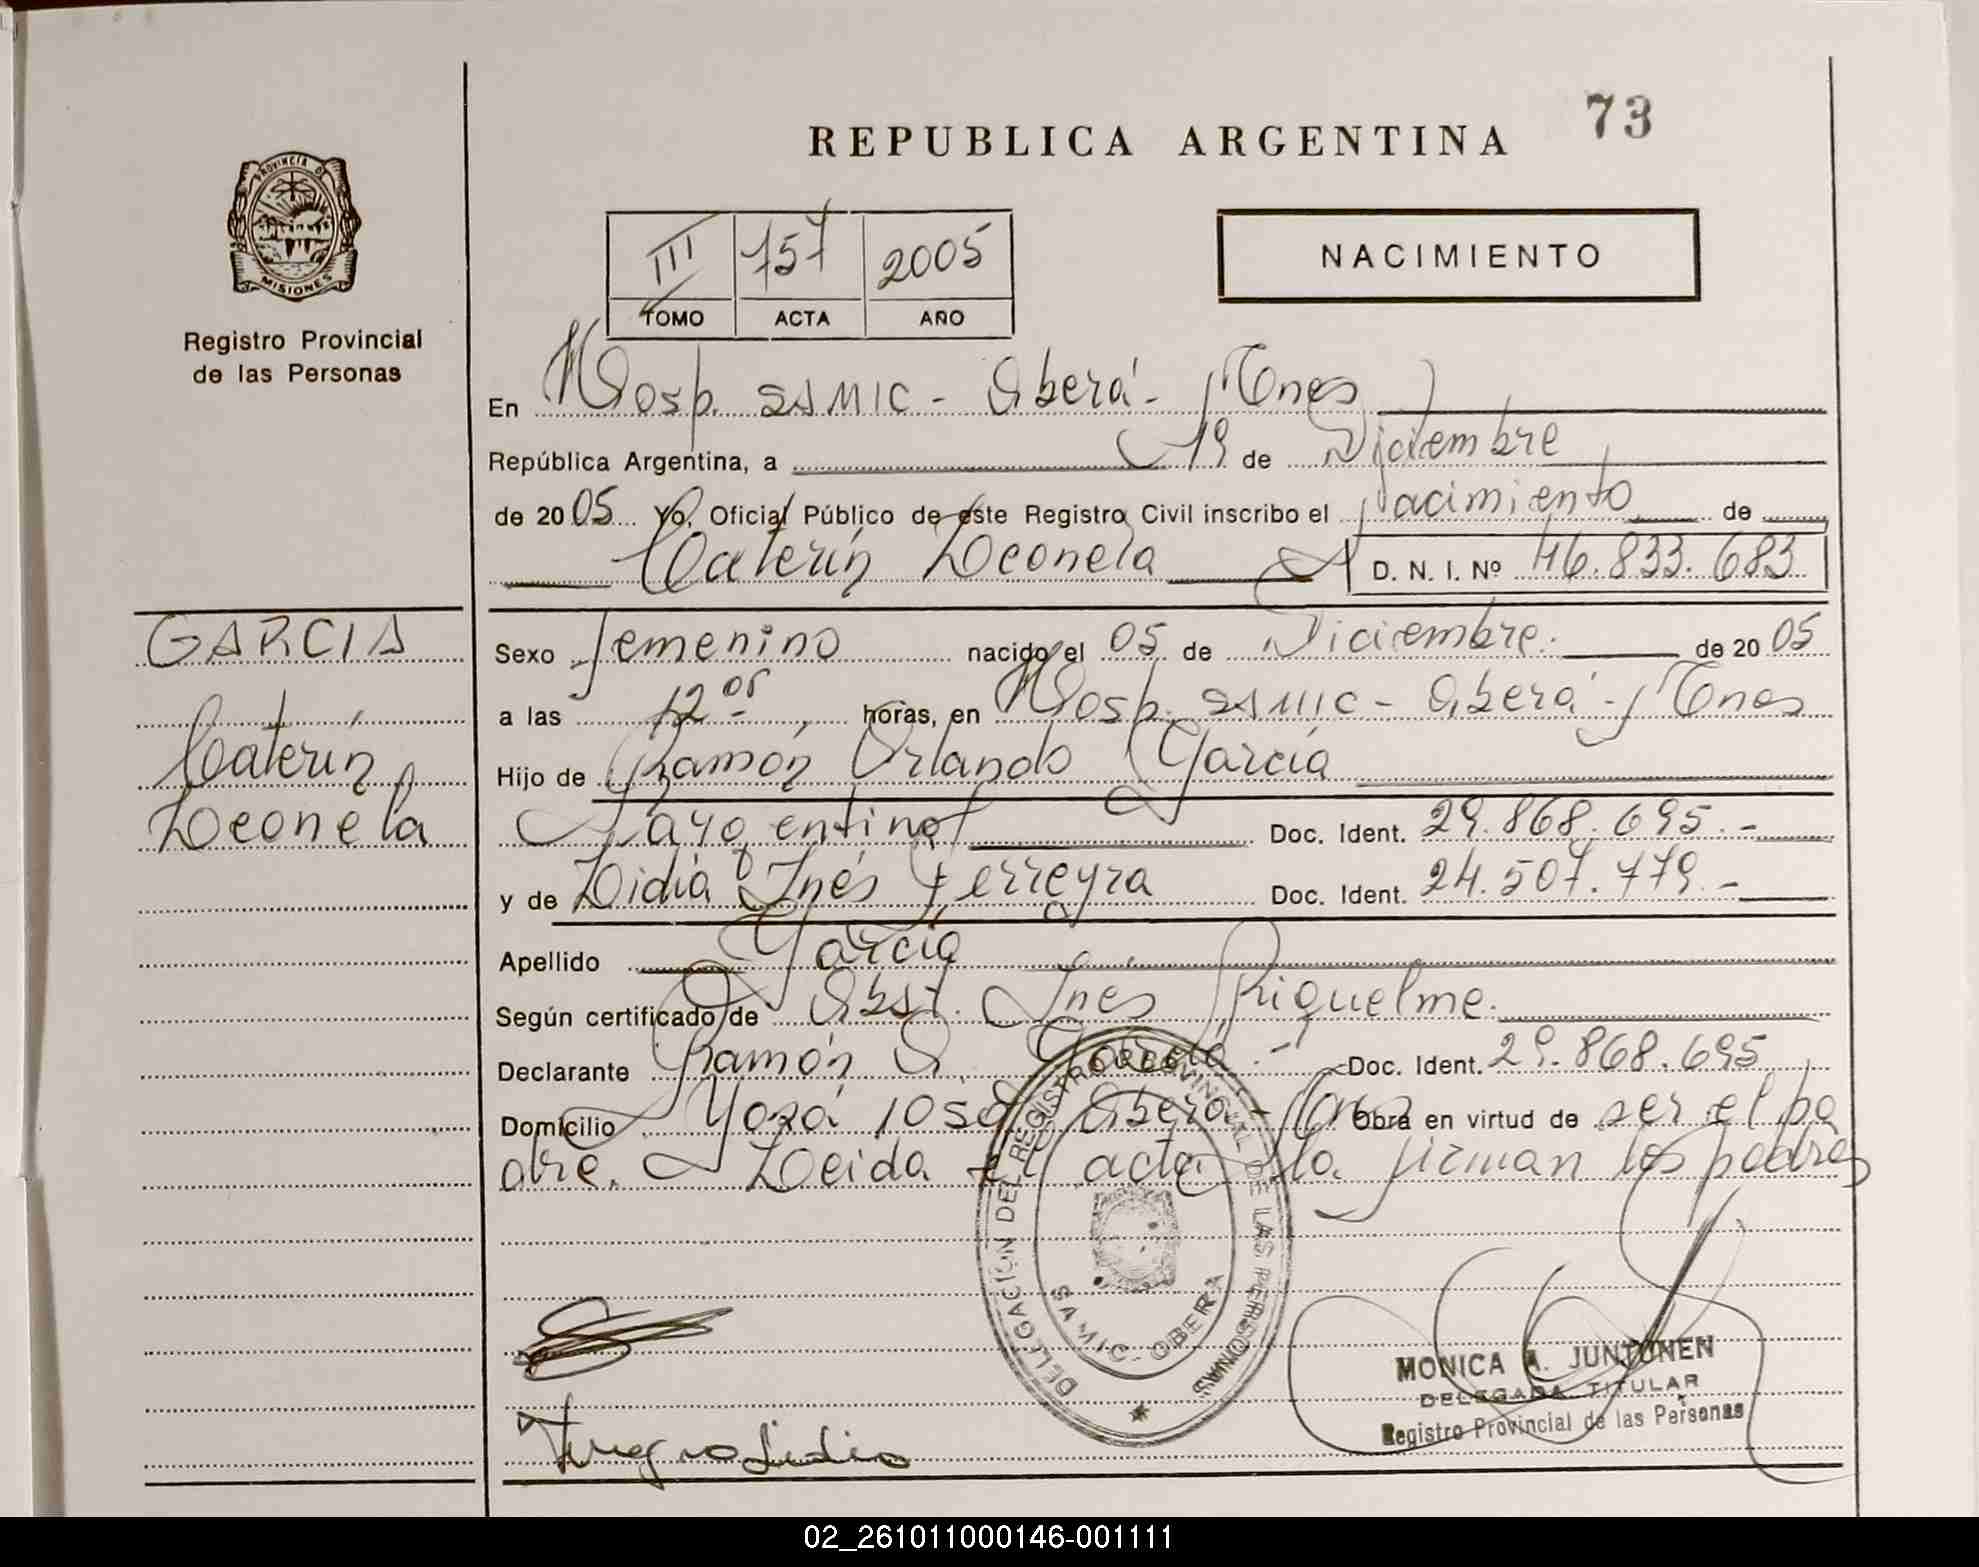 REPUBLICA ARGENTINA
73
PROVINCIA DE
MISIONES
Registro Provincial
de las Personas
III 757 2005
TOMO ACTA AÑO
NACIMIENTO
En Hosp. SAMIC - Oberá - Mnes
República Argentina, a 19 de Diciembre
de 2005 Yo, Oficial Público de este Registro Civil inscribo el Nacimiento de
Caterin Leonela D. N. I. Nº 46.833.683
GARCIA
Caterin
Leonela
Sexo femenino nacido el 05 de Diciembre. de 2005
a las 12 05 horas, en Hosp. SAMIC - Oberá - Mnes
Hijo de Ramón Orlando García
argentino Doc. Ident. 29.868.695.-
y de Lidia Inés Ferreyra Doc. Ident. 24.507.779.-
Apellido García
Según certificado de Obst. Inés Riquelme.
Declarante Ramón O. García.- Doc. Ident. 29.868.695
Domicilio Yazá 1050 Oberá - Mnes Obra en virtud de ser el pa
dre. Leida el acta la firman los padres
DELEGACIÓN DEL REGISTRO PROVINCIAL DE LAS PERSONAS
SAMIC - OBERA
MONICA A. JUNTUNEN
DELEGADA TITULAR
Registro Provincial de las Personas
02_261011000146-001111